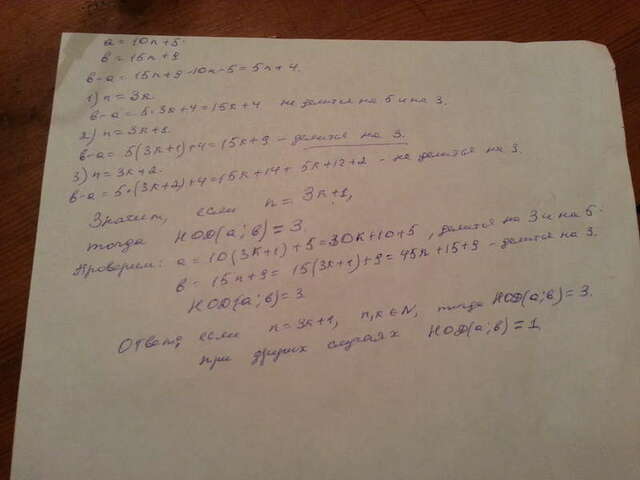 a = 10n+5.
b = 15n+9
b-a = 15n+9-10n-5=5n+4.
1) n = 3k.
b-a = 5·3k+4=15k+4 не делится на 5 и на 3.
2) n = 3k+1.
b-a = 5(3k+1)+4=15k+9 - делится на 3.
3) n = 3k+2.
b-a = 5·(3k+2)+4=15k+14 + 5k+12+2 - не делится на 3.
Значит, если n = 3k+1,
тогда НОД(a;b)=3.
Проверим: a = 10(3k+1)+5=30k+10+5, делится на 3 и на 5.
b = 15n+9 = 15(3k+1)+9=45k+15+9 - делится на 3.
НОД(a;b)=3
Ответ, если n=3k+1, n,k∈N, тогда НОД(a;b)=3.
при других случаях НОД(a;b)=1